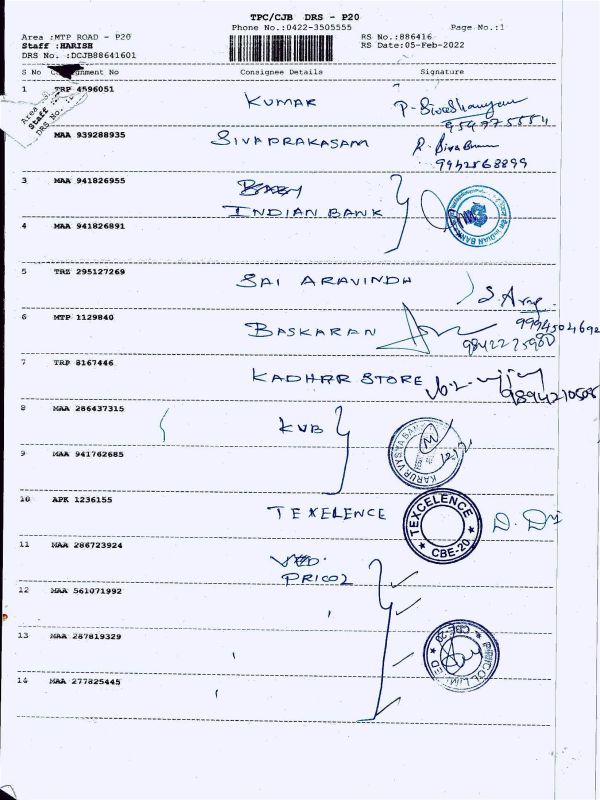 TPC/CJB DRS - P20
Phone No.:0422-3505555 Page No.:1
Area :MTP ROAD - P20
Staff :HARISH
DRS No. :DCJB88641601
RS No.:886416
RS Date:05-Feb-2022
S No Consignment No Consignee Details Signature
1 TRP 4596051 KUMAR
Area
Staff
DRS No.
MAA 939288935 SIVAPRAKASAM
9942568899
3 MAA 941826955
INDIAN BANK
INDIAN BANK
4 MAA 941826891
5 TRZ 295127269 SAI ARAVINDH
9994504692
6 MTP 1129840 BASKARAN
7 TRP 8167446 KADHAR STORE
9894210505
8 MAA 286437315 KVB
KARUR VYSYA BANK
9 MAA 941762685
10 APK 1236155 TEXELENCE
TEXCELENCE
CBE-20
11 MAA 286723924
PRICOL
12 MAA 561071992
13 MAA 287819329
CBE-20
14 MAA 277825445